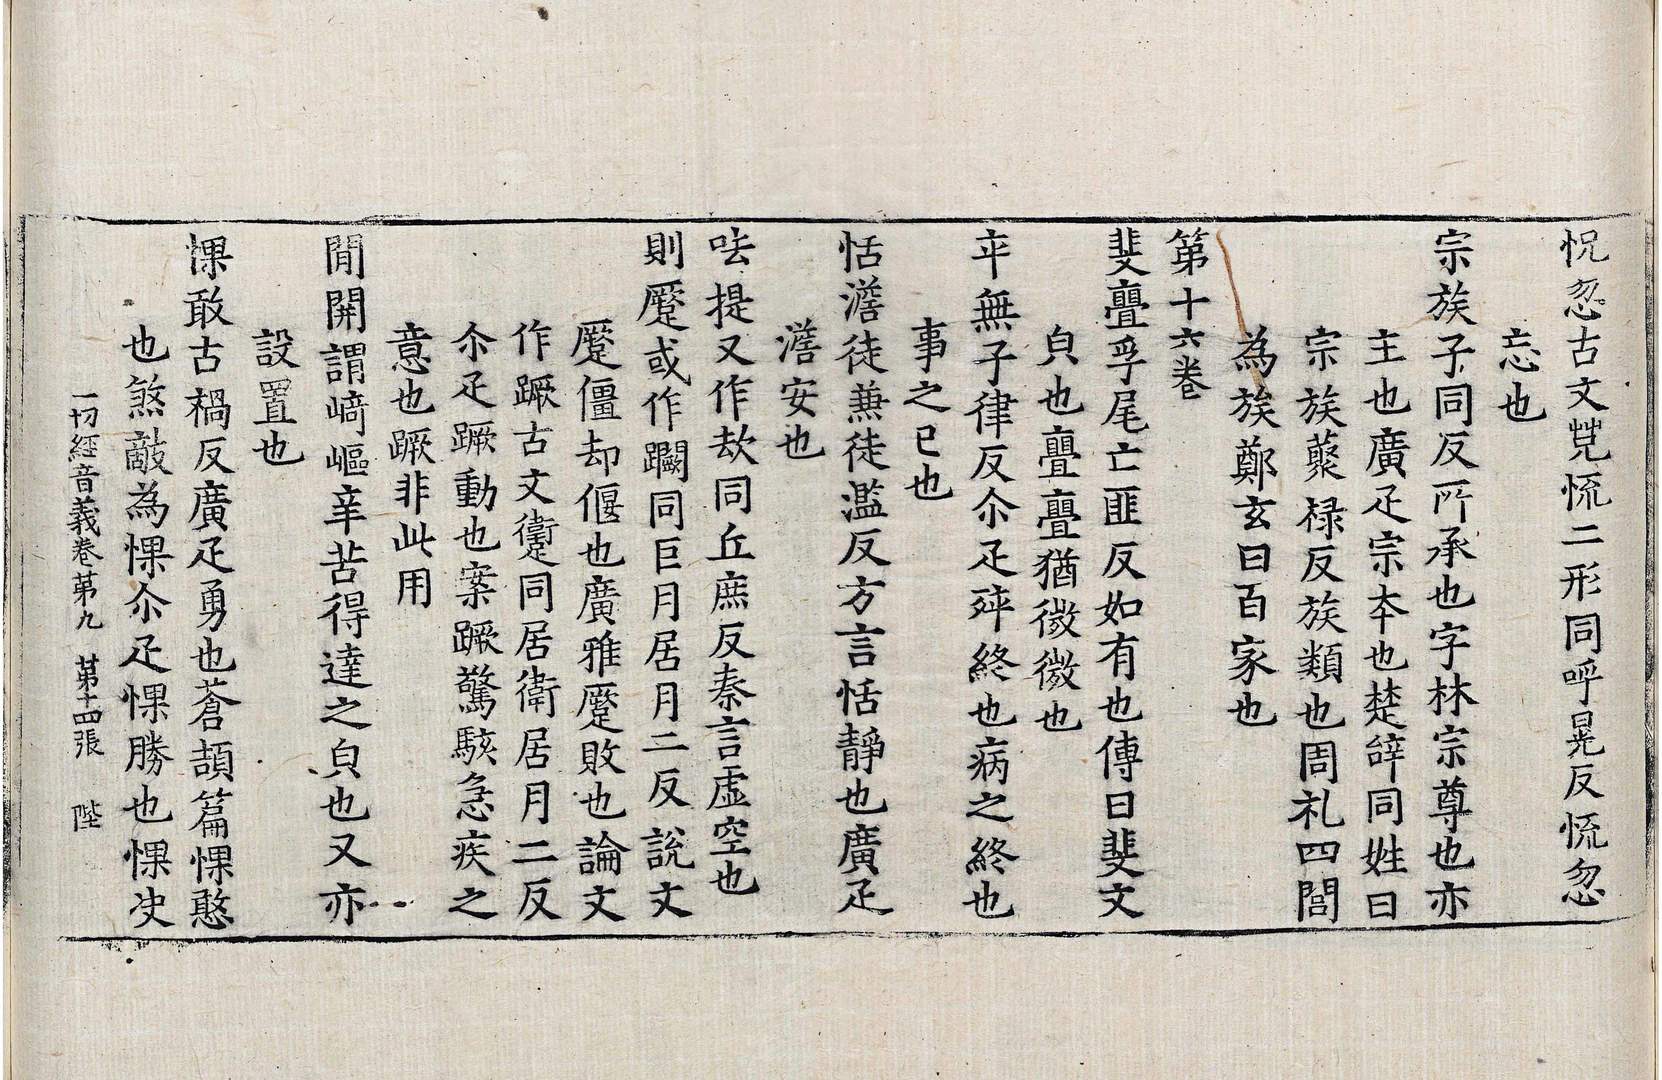 怳忽古文㒯㤺二形同呼晃反㤺忽
忘也
宗族子同反所承也字林宗尊也亦
主也廣疋宗本也楚辝同姓曰
宗族藂禄反族類也周礼四閭
為族鄭玄曰百家也
第十六卷
斐亹孚尾亡匪反如有也傳曰斐文
皃也亹亹猶微微也
卒無子律反尒疋殚終也病之終也
事之已也
恬澹徒蒹徒濫反方言恬静也廣疋
澹安也
呿提又作㰦同丘庶反秦言虚空也
則蹷或作躝同巨月居月二反說文
蹷僵却偃也廣雅蹷敗也論文
作蹶古文𧗸同居衛居月二反
尒疋蹶動也案蹶驚駭急疾之
意也蹶非此用
閒開謂﨑嶇辛苦得達之皃也又亦
設置也
惈敢古禍反廣疋勇也蒼頡篇惈憨
也煞敵為惈尒疋惈勝也惈决
一切經音義卷第九 第十四張 陛